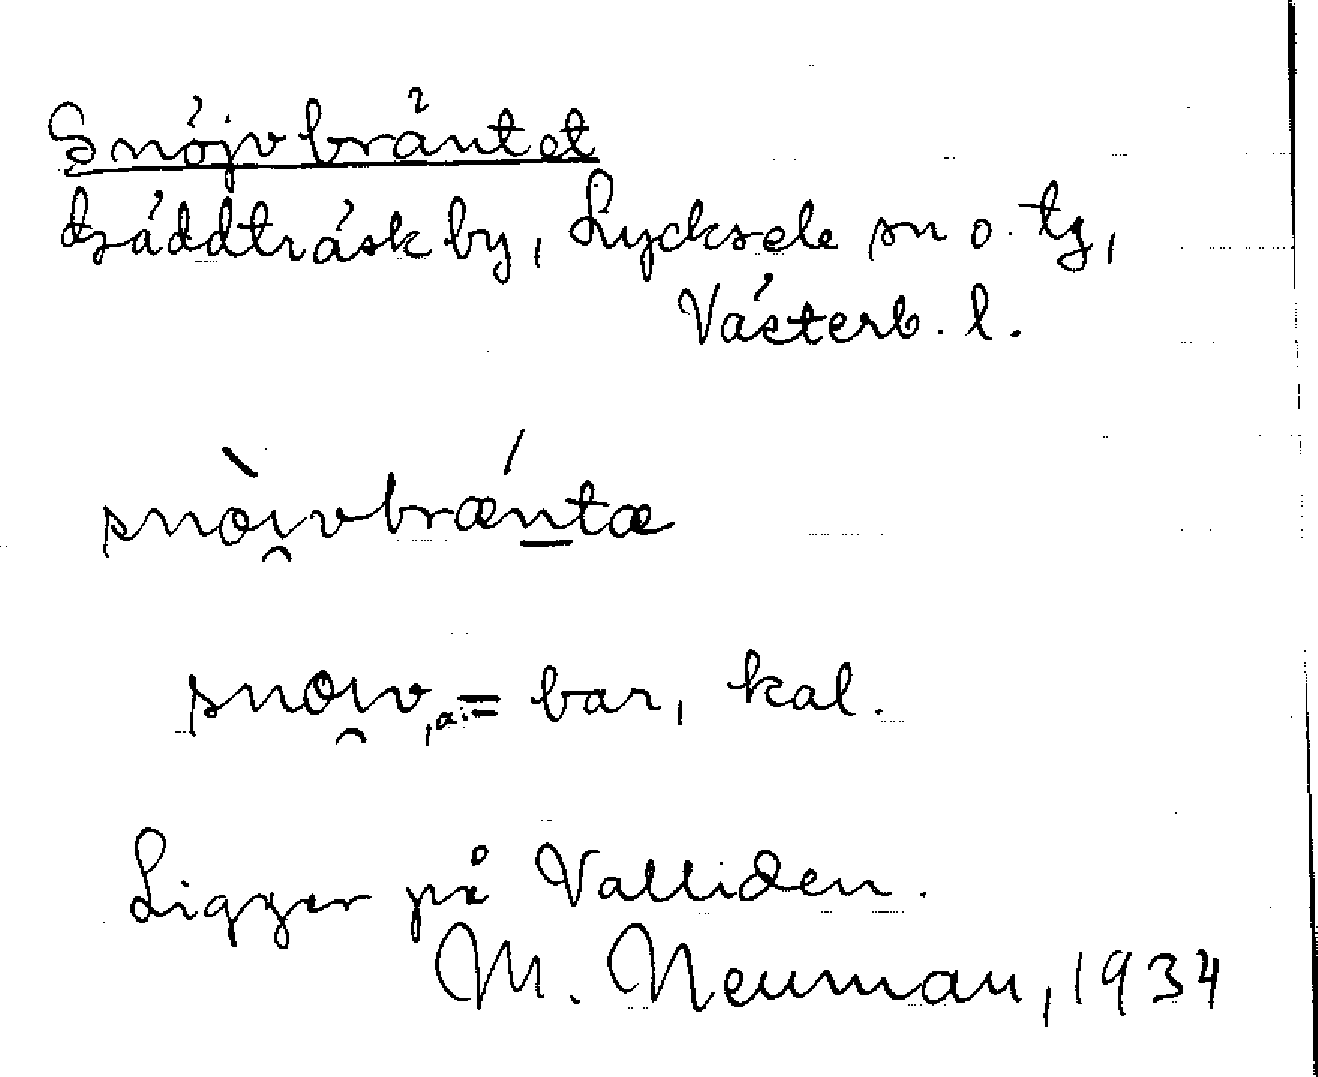 Snöjvbräntet
Gäddträsk by, Lycksele sn o. tg,
Västerb. l.
snòi̯vbrǽntæ
snoi̯v, a. = bar, kal.
Ligger på Valliden.
M. Neuman, 1934